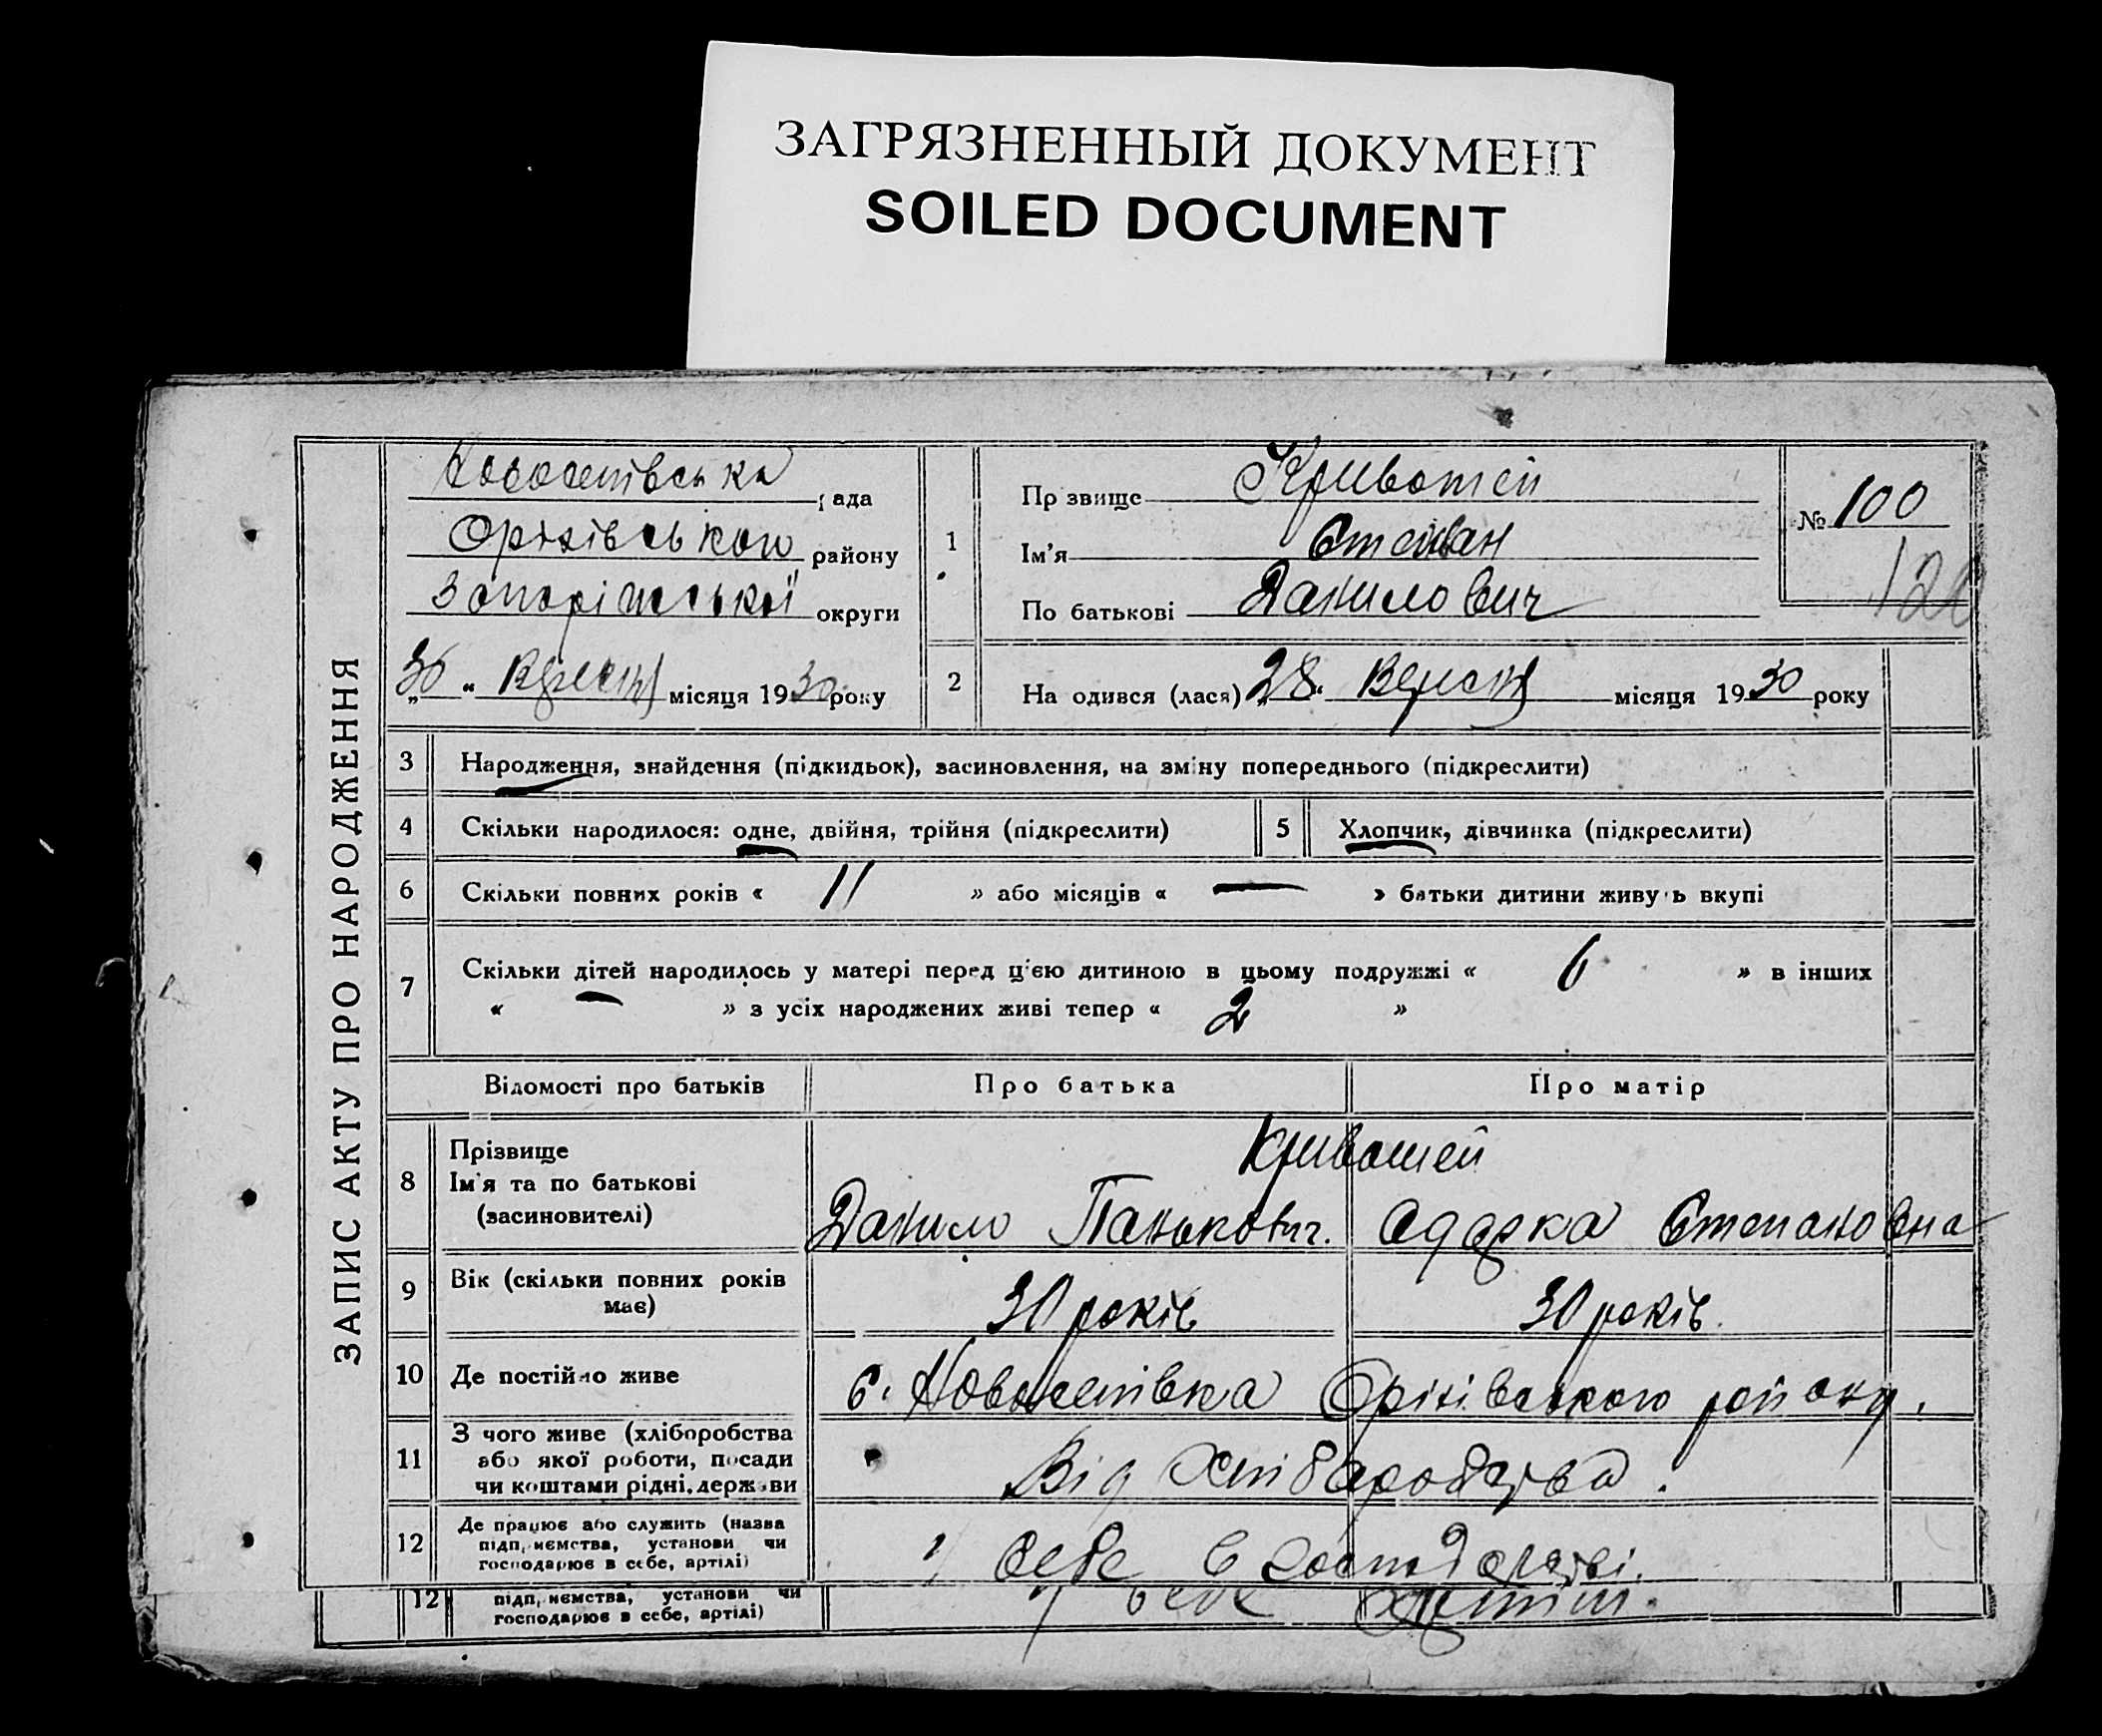 ЗАГРЯЗНЕННЫЙ ДОКУМЕНТ
SOILED DOCUMENT
ЗАПИС АКТУ ПРО НАРОДЖЕННЯ
рада
Оріхівського району
Запоріжської округи
„30“ Вересня місяця 1930 року
1
Прізвище Кривошей
Ім'я Степан
По батькові Данилович
№ 100
120
2
Народився (лася) „28“ Вересня місяця 1930 року
3 Народження, знайдення (підкидьок), засиновлення, на зміну попереднього (підкреслити)
4 Скільки народилося: одне, двійня, трійня (підкреслити)
5 Хлопчик, дівчинка (підкреслити)
6 Скільки повних років « 11 » або місяців « — » батьки дитини живуть вкупі
7 Скільки дітей народилось у матері перед цією дитиною в цьому подружжі « 6 » в інших
« — » з усіх народжених живі тепер « 2 »
Відомості про батьків Про батька Про матір
8 Прізвище
Ім'я та по батькові
(засиновителі)
Кривошей
Данило Панькович. Одарка Степановна
9 Вік (скільки повних років
має)
30 років 30 років.
10 Де постійно живе
с. Оріхівського району.
11 З чого живе (хліборобства
або якої роботи, посади
чи коштами рідні, держави
Від Хліборобства.
12 Де працює або служить (назва
підприємства, установи чи
господарює в себе, артілі)
У себе в господарстві.
12 підприємства, установи чи
господарює в себе, артілі)
У себе